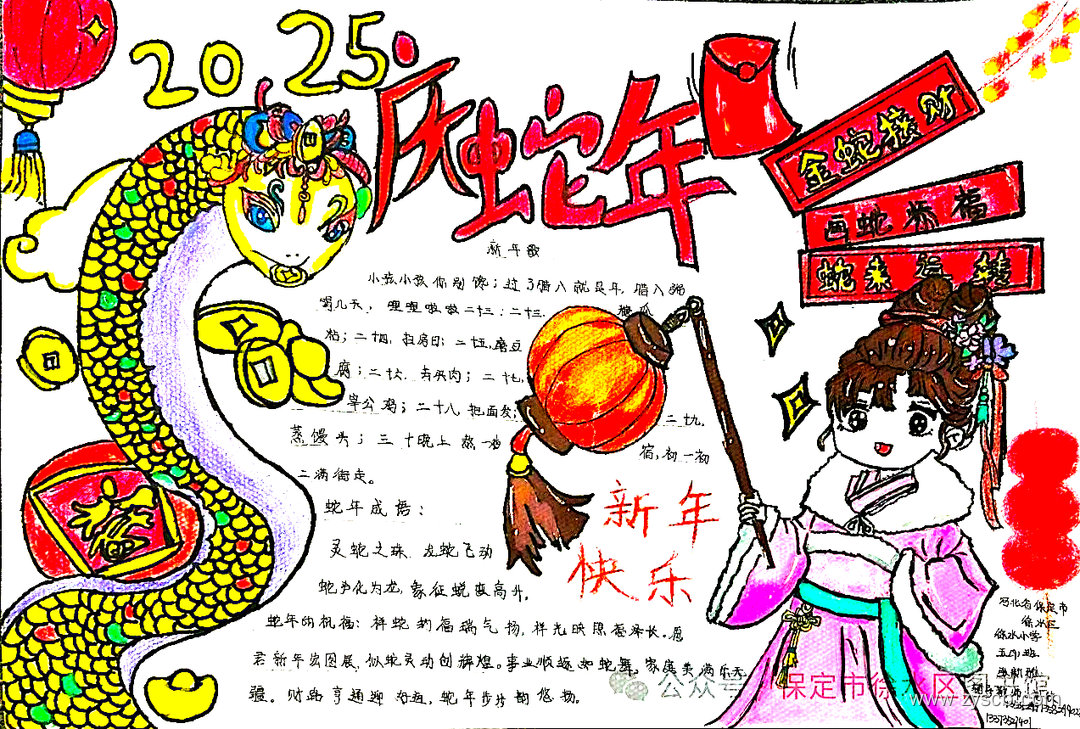 2025
庆蛇年
金蛇接财
画蛇添福
蛇来运转
新年歌
小孩小孩你别馋;过了腊八就是年,腊八粥
喝几天,哩哩啦啦二十三;二十三,糖瓜
粘;二十四,扫房日;二十五,磨豆
腐;二十六,去买肉;二十七,
宰公鸡;二十八,把面发;二十九,
蒸馒头;三十晚上熬一宿,初一初
二满街走。
蛇年成语:
灵蛇之珠、龙蛇飞动
蛇为化为龙,象征蜕变高升。
新年
快乐
蛇年的祝福:祥蛇纳福瑞气扬,祥光映照春泽长。愿
君新年宏图展,似蛇灵动创辉煌。事业顺遂如蛇舞。家庭美满乐无
疆。财路亨通迎好运,蛇年步步韵悠扬。
福
河北省保定市
徐水区
徐水小学
公众号
保定市徐水区图书馆